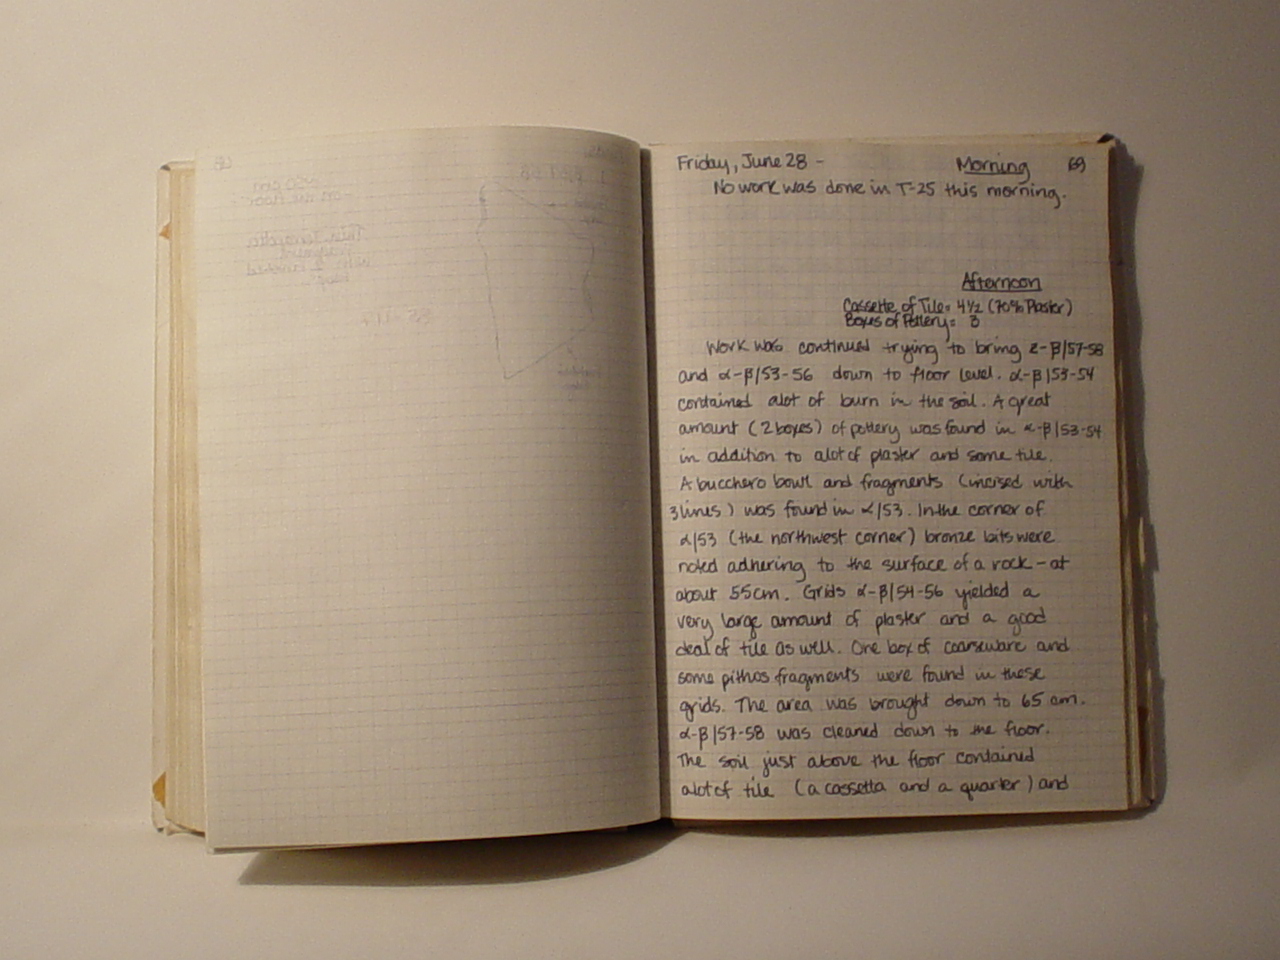 Friday, June 28 - Morning 69
No work was done in T-25 this morning.
Afternoon
Cassette of Tile= 4½ (70% Plaster)
Boxes of Pottery= 3
Work was continued trying to bring α-β/57-58
and α-β/53-56 down to floor level. α-β/53-54
contained alot of burn in the soil. A great
amount (2 boxes) of pottery was found in α-β/53-54
in addition to alot of plaster and some tile.
A bucchero bowl and fragments (incised with
3 lines) was found in α/53. In the corner of
α/53 (the northwest corner) bronze bits were
noted adhering to the surface of a rock - at
about 55cm. Grids α-β/54-56 yielded a
very large amount of plaster and a good
deal of tile as well. One box of coarseware and
some pithos fragments were found in these
grids. The area was brought down to 65 cm.
α-β/57-58 was cleaned down to the floor.
The soil just above the floor contained
alot of tile (a cassetta and a quarter) and